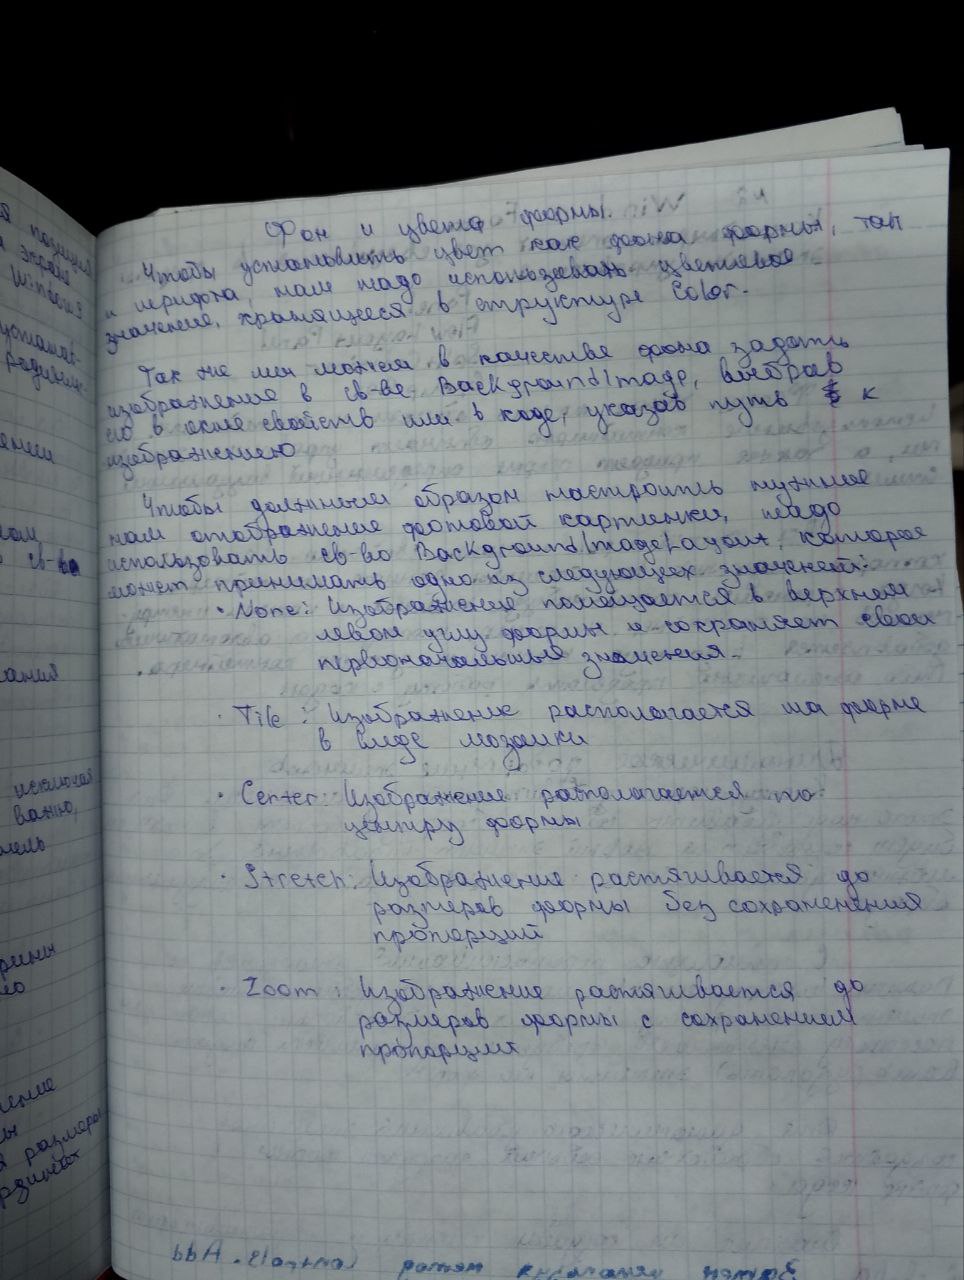 Фон и цвета формы.
Чтобы установить цвет как фона формы, так
и шрифта, нам надо использовать цветовое
значение, хранящееся в структуре Color.
Так же мы можем в качестве фона задать
изображение в св-ве BackgroundImage, выбрав
его в окне свойств или в коде, указав путь к
изображению
Чтобы должным образом настроить нужное
нам отображение фотовой картинки, надо
использовать св-во BackgroundImageLayout, которое
может принимать одно из следующих значений:
· None: Изображение помещается в верхнем
левом углу формы и сохраняет свои
первоначальные значения.
· Tile: Изображение располагается на форме
в виде мозаики
· Center: Изображение располагается по
центру формы
· Stretch: Изображение растягивается до
размеров формы без сохранения
пропорций
· Zoom: Изображение растягивается до
размеров формы с сохранением
пропорций